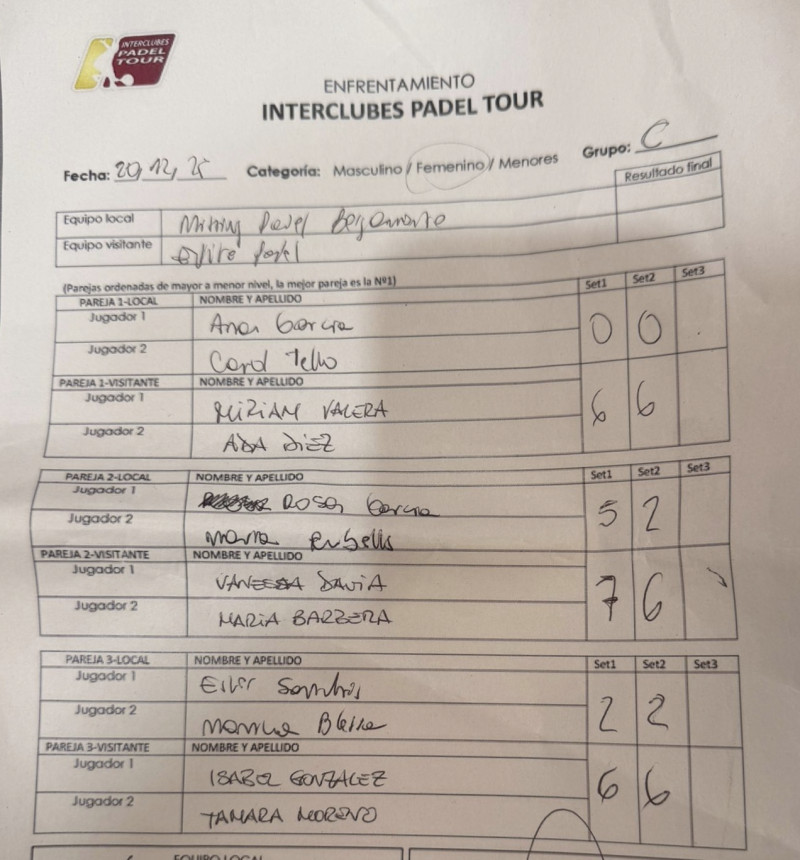 INTERCLUBES
PADEL
TOUR
ENFRENTAMIENTO
INTERCLUBES PADEL TOUR
Fecha: 20, 12, 25 Categoría: Masculino / Femenino / Menores Grupo: C
Resultado final
Equipo local Padel
Equipo visitante Padel
(Parejas ordenadas de mayor a menor nivel, la mejor pareja es la Nº1)
PAREJA 1-LOCAL NOMBRE Y APELLIDO Set1 Set2 Set3
Jugador 1 Ana Garcia 0 0
Jugador 2 Carol Tello
PAREJA 1-VISITANTE NOMBRE Y APELLIDO
Jugador 1 MIRIAM VALERA 6 6
Jugador 2 ADA DIEZ
PAREJA 2-LOCAL NOMBRE Y APELLIDO Set1 Set2 Set3
Jugador 1 ROSA Garcia 5 2
Jugador 2 Maria
PAREJA 2-VISITANTE NOMBRE Y APELLIDO
Jugador 1 VANESSA DAVIA 7 6
Jugador 2 MARIA BARBERA
PAREJA 3-LOCAL NOMBRE Y APELLIDO Set1 Set2 Set3
Jugador 1 2 2
Jugador 2
PAREJA 3-VISITANTE NOMBRE Y APELLIDO
Jugador 1 ISABEL GONZALEZ 6 6
Jugador 2 TAMARA MORENO
EQUIPO LOCAL